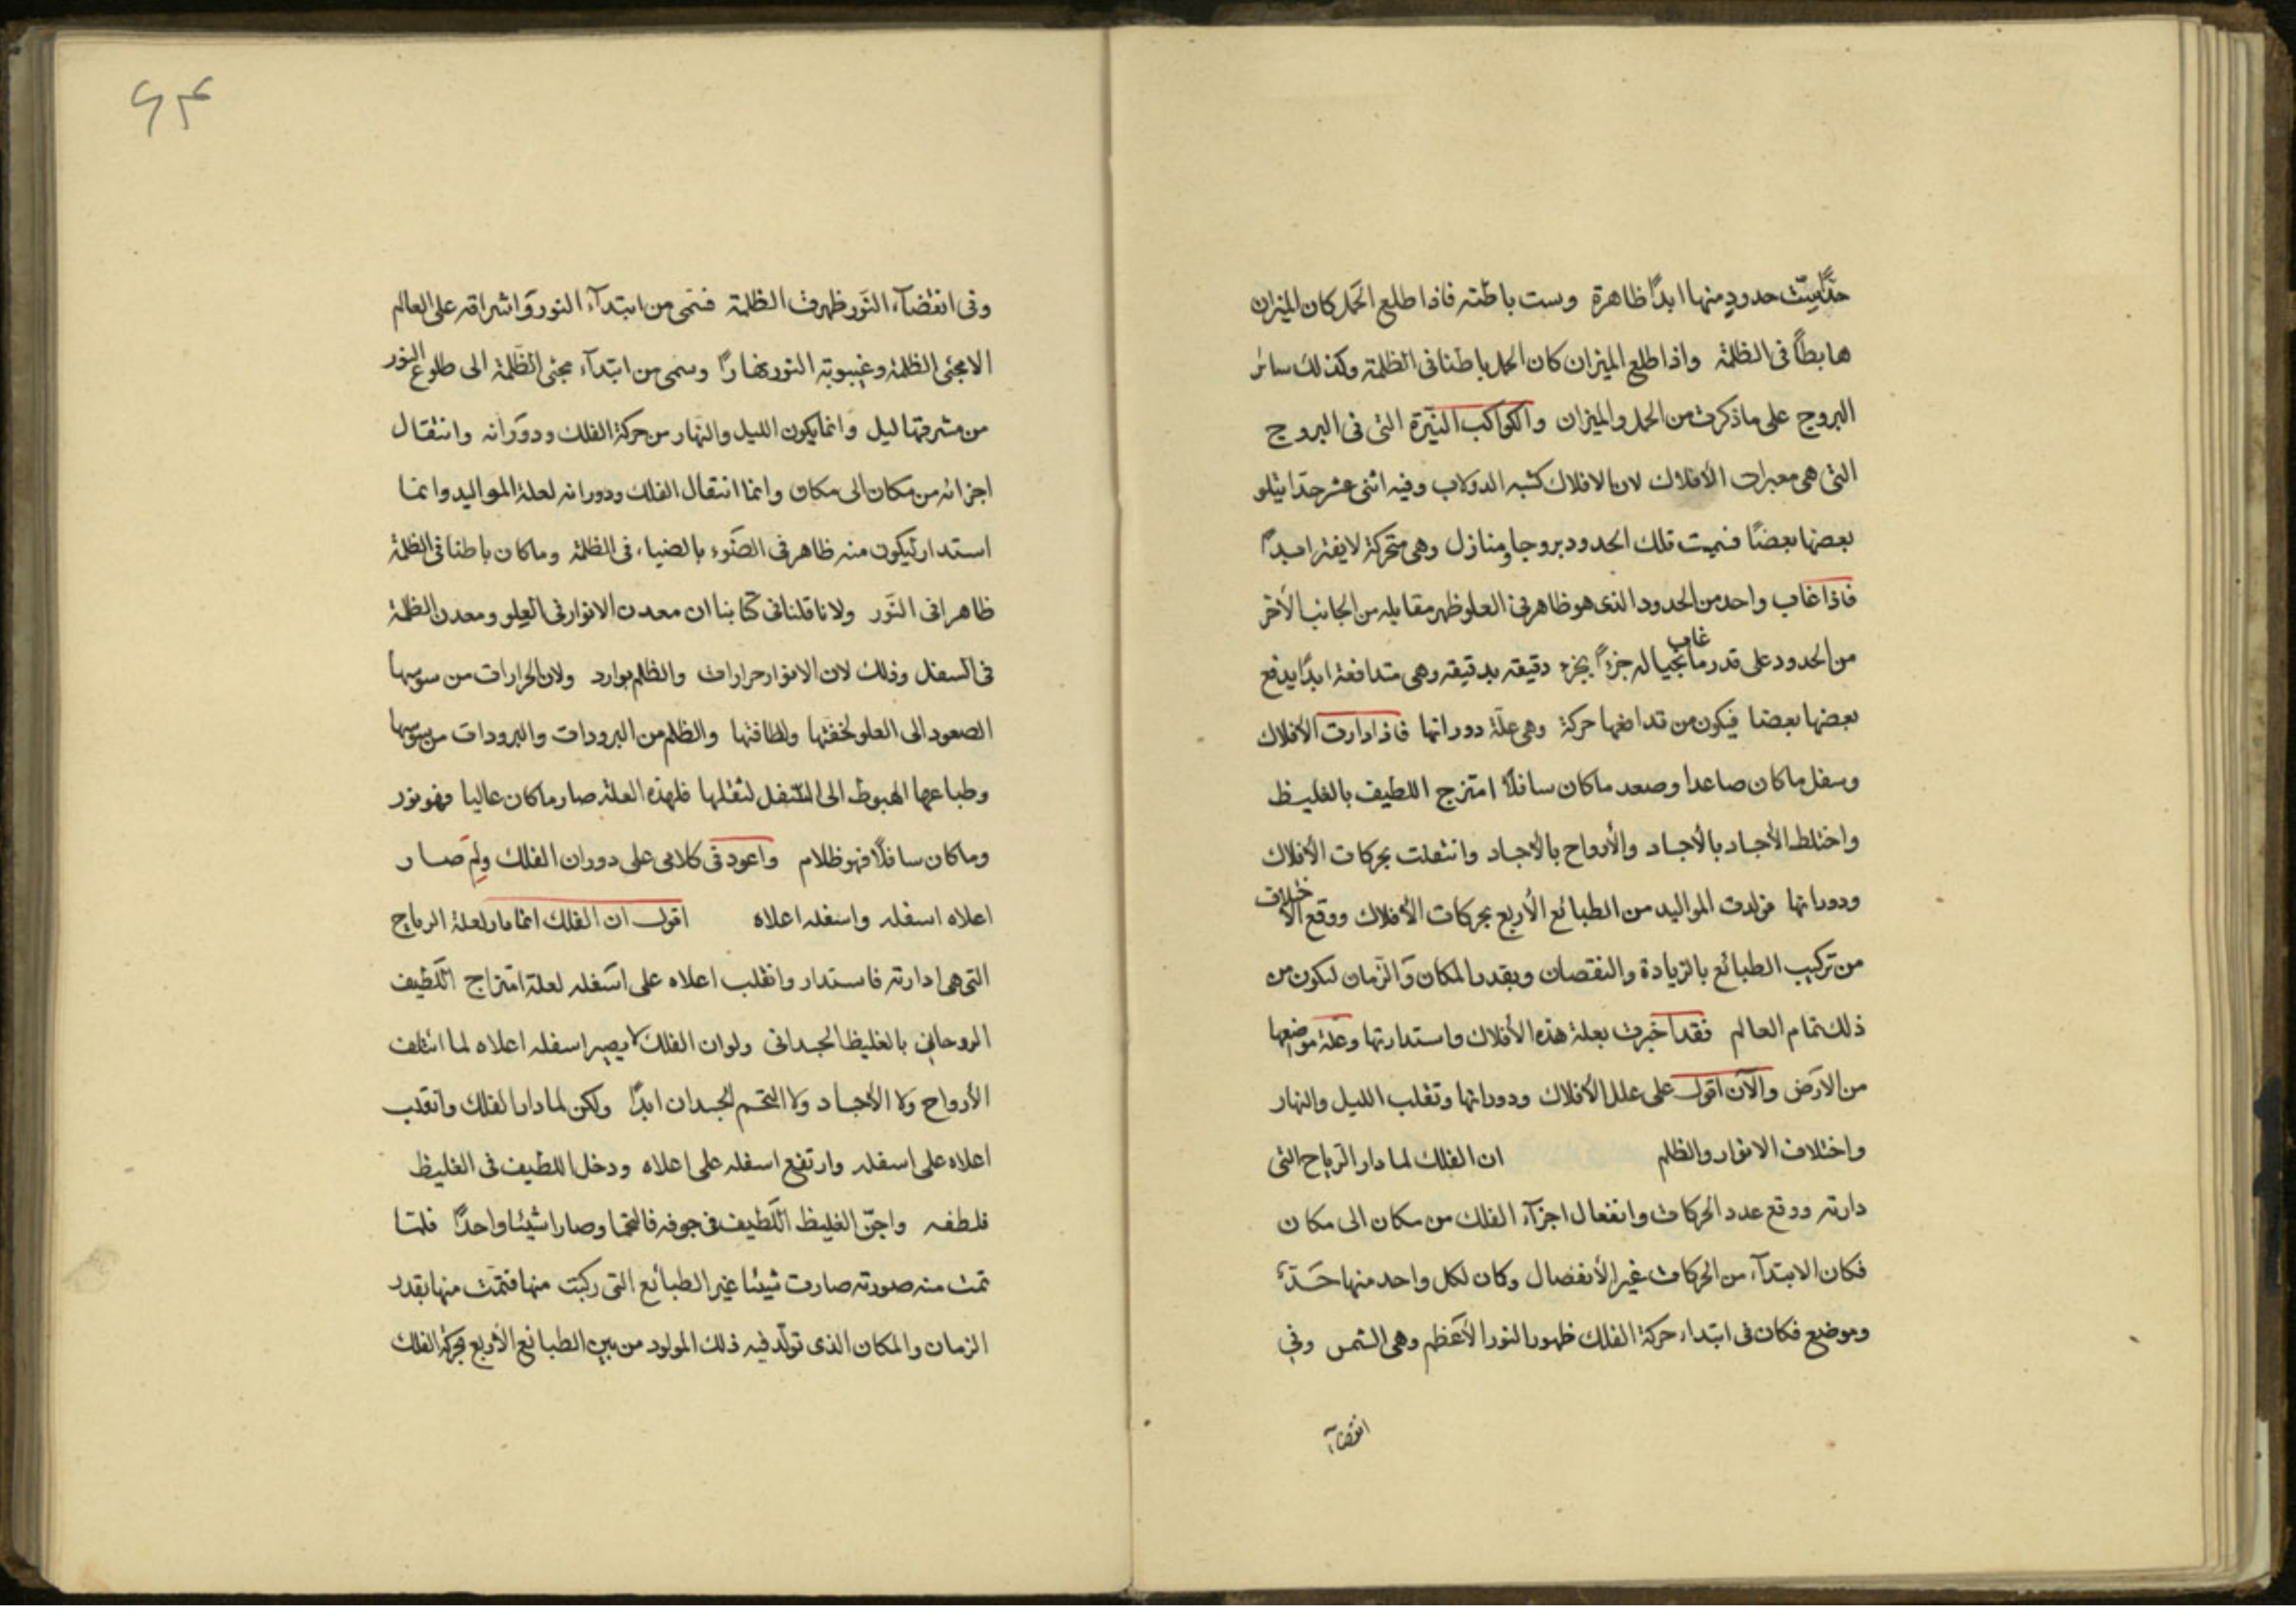 حدّا ستّ حدود منها ابدًا ظاهرة وست باطنه فاذا طلع الحَمل كان الميزان
هابطًا فى الظلمة واذا طلع الميزان كان الحمل باطنا فى الظلمة وكذلك سائر
البروج على ما ذكرت من الحمل والميزان والكواكب النيّرة التى فى البروج
التى هى معبرات الأفلاك لان الافلاك كشبه الدولاب وفيه اثنى عشر حدّا يتلو
بعضها بعضًا فسميت تلك الحدود بروجا ومنازل وهى متحركة لا يفتر ابدًا
فاذا غاب واحد من الحدود الذى هو ظاهر فى العلو ظهر مقابله من الجانب الأخر
من الحدود على قدر ما غاب بحياله جزءً بجزء دقيقه بدقيقه وهى متدافعة ابدًا يدفع
بعضها بعضا فيكون من تدافعها حركة وهى علّة دورانها فاذا دارت الأفلاك
وسفل ما كان صاعدا وصعد ما كان سافلًا امتزج اللطيف بالغليظ
واختلط الأجساد بالأجساد والأرواح بالأجساد وانتقلت بحركات الأفلاك
ودورانها فولدت المواليد من الطبائع الأربع بحركات الأفلاك ووقع الاختلاف
من تركيب الطبائع بالزيادة والنقصان وبقدر المكان وَالزّمان ليكون من
ذلك تمام العالم فقد اخبرت بعلة هذه الأفلاك واستدارتها وعلة مواضعها
من الارَض والآن اقول على علل الأفلاك ودورانها وتقلب الليل والنهار
واختلاف الانوار والظلم ان الفلك لما دار الرّياح التى
دارته ووقع عدد الحركات وانفعال اجزآء الفلك من مكان الى مكان
فكان الابتدآء من الحركات غير الأنفصال وكان لكل واحد منها حَدّ
وموضع فكان فى ابتداء حركة الفلك ظهور النور الأعَظم وهى الشمس وفى
انقضآ
۶۴
وفى انقضآء النّور ظهرت الظلمة فسمى من ابتدآء النور وَاشراقه على العالم
الا مجئى الظلمة وغيبوبته النور نهارًا وسمى من ابتدآء مجئى الظّلمة الى طلوع النور
من مشرقها ليل وَانما يكون الليل والنّهار من حركة الفلك ودوَرانه وانتقال
اجزائه من مكان الى مكان وانما انتقال الفلك ودورانه لعلة المواليد وانما
استدار ليكون منه ظاهر فى الضّوء بالضياء فى الظلمة وما كان باطنا فى الظلمة
ظاهرا فى النّور ولانا قلنا فى كتابنا ان معدن الانوار فى العِلو ومعدن الظلمة
فى السفل وذلك لان الانوار حرارات والظلم بوارد ولان الحرارات من سوسها
الصعود الى العلو لخفتها ولطافتها والظلم من البرودات والبرودات من سوسها
وطباعها الهبوط الى السّفل لثقلها فلهذه العلة صار ما كان عاليا فهو نور
وما كان سافلًا فهو ظلام واعود فى كلامى على دوران الفلك ولِمَ صار
اعلاه اسفله واسفله اعلاه اقول ان الفلك انما دار لعلة الرياح
التى هى ادارته فاستدار وانقلب اعلاه على اسَفله لعلة امتزاج اللّطيف
الروحانى بالغليظ الجسدانى ولو ان الفلك لا يصير اسفله اعلاه لما ائتلف
الأرواح ولا الأجساد ولا التحم الجسدان ابدًا ولكن لما دار الفلك وانقلب
اعلاه على اسفله وارتفع اسفله على اعلاه ودخل اللطيف فى الغليظ
فلطفه واجنّ الغليظ اللّطيف فى جوفه فالتحما وصارا شيئا واحدًا فلمّا
تمت منه صورته صارت شيئا غير الطبائع التى ركبت منها فتمّت منها بقدر
الزمان والمكان الذى تولّد فيه ذلك المولود من بين الطبائع الأربع بحركة الفلك